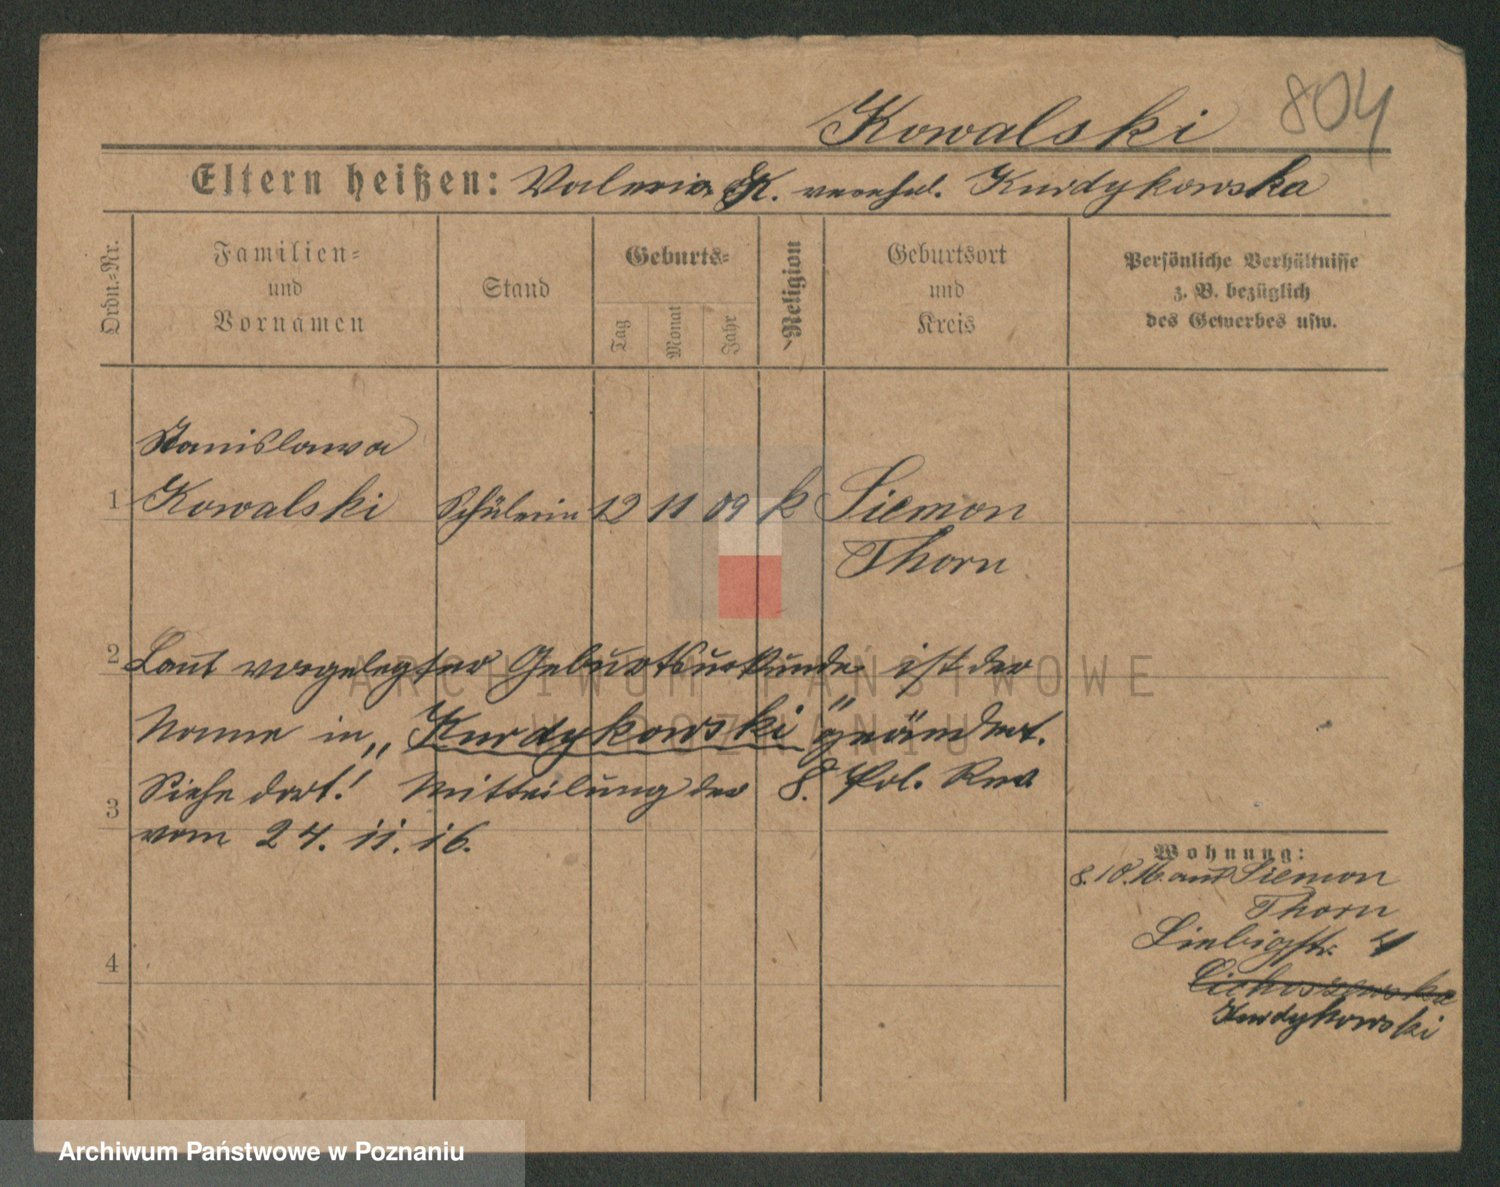 804
Kowalski
Eltern heißen: Valeria K. verehel. Kurdykowska
Ordn.-Nr.
Familien-
und
Vornamen
Stand
Geburts-
Tag
Monat
Jahr
Religion
Geburtsort
und
Kreis
Persönliche Verhältnisse
z. B. bezüglich
des Gewerbes usw.
Stanislawa
1 Kowalski Schülerin 12 11 09 k Siemon
Thorn
2 Laut vorgelegter Geburtsurkunde ist der
Name in „Kurdykowski" geändert.
3 Siehe dort! Mitteilung des 8. Pol. Rev.
vom 24. 11. 16.
Wohnung:
8. 10. 16. aus Siemon
Thorn
Liebigstr. 4
Kurdykowski
4
ARCHIWUM PAŃSTWOWE
W POZNANIU
Archiwum Państwowe w Poznaniu